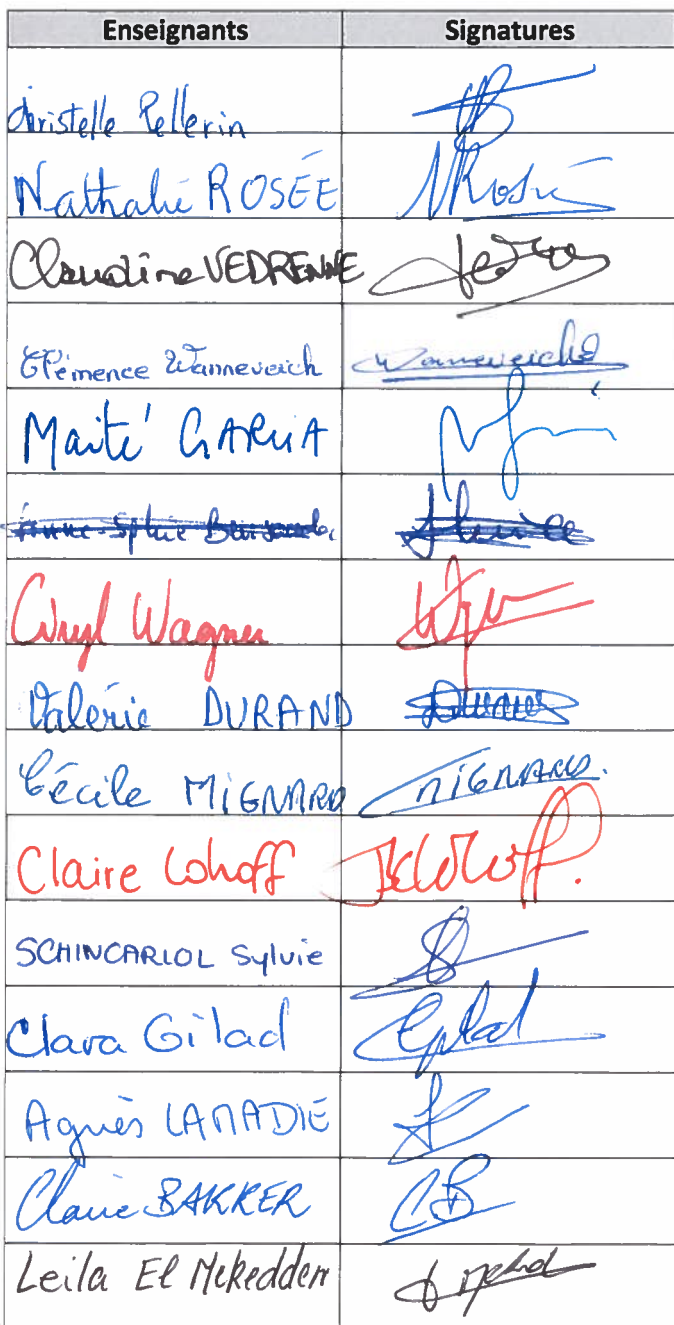 Enseignants Signatures
Christelle Pellerin
Nathalie ROSÉE NRosée
Claudine VEDRENNE
Clémence Wanneveich Wanneveich
Maité GARCIA
Anne-Sophie
Cyryl Wagner
Valérie DURAND
Cécile MIGNARD MIGNARD.
Claire Lohoff
SCHINCARIOL Sylvie
Clara Gilad Gilad
Agnès LAMADIE
Claire BAKKER CB
Leila El Mekeddem